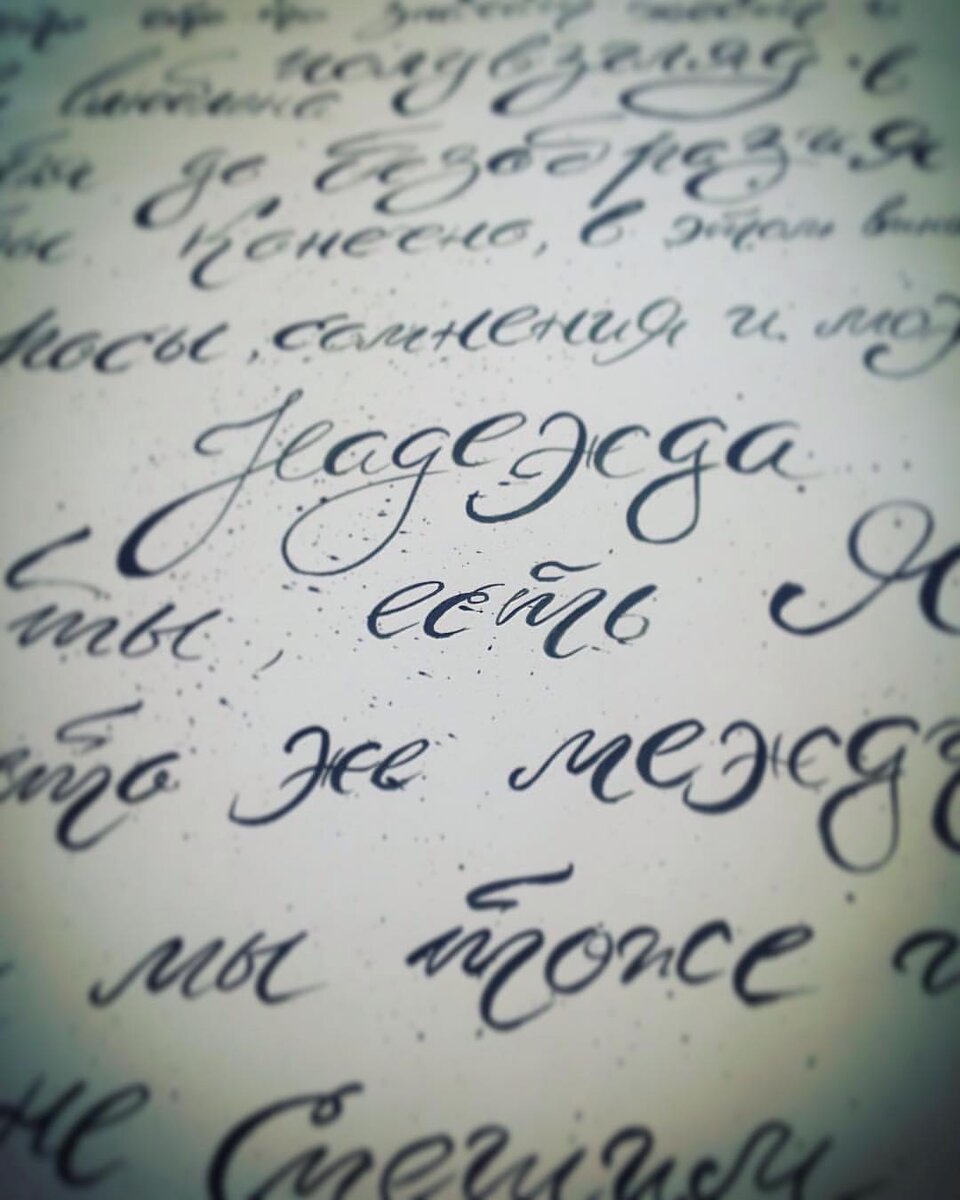 полувзгляд. в
влюблина
бы до безобразия
Конесно, в этом вино
носы, сомнения и моз
Надежда
ты, есть Я
что же между
мы тоже
не Спешим